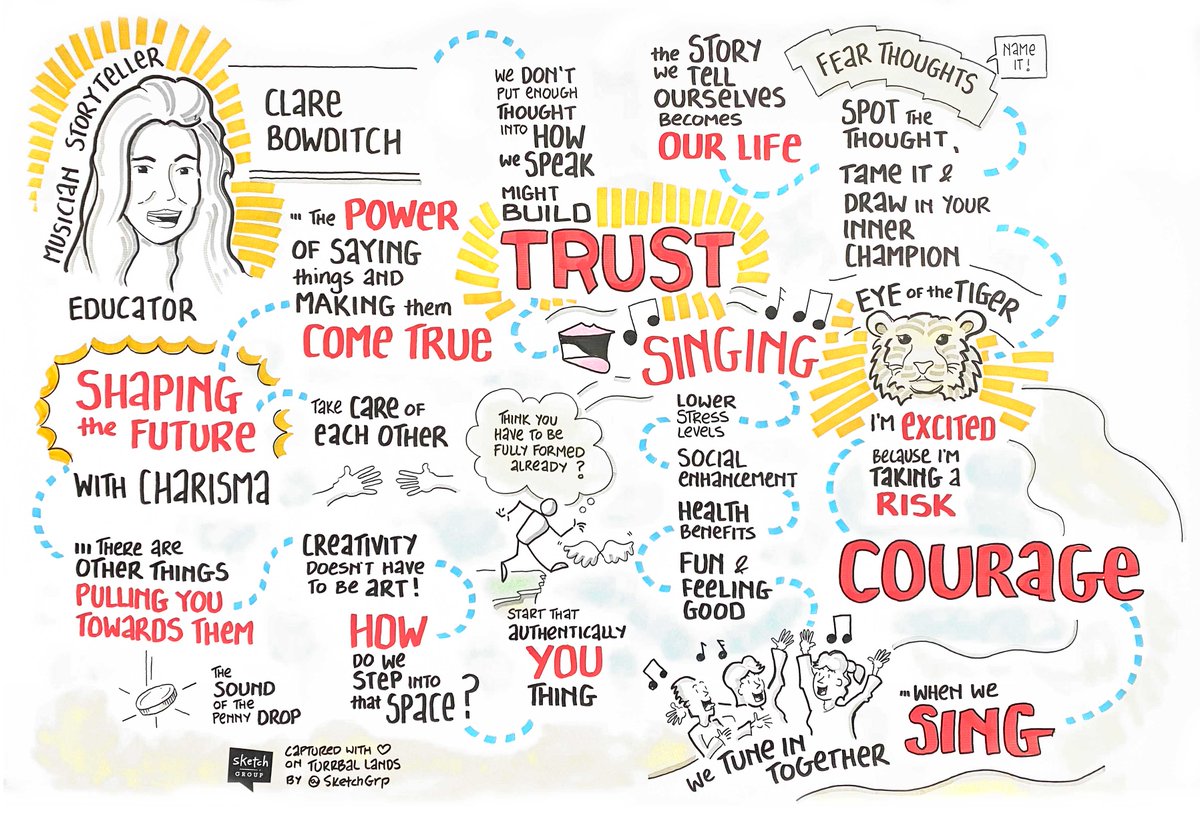 MUSICIAN STORYTELLER
EDUCATOR
CLARE
BOWDITCH
... The POWER
OF SAYING
things AND
MAKING them
COME TRUE
SHAPING
the FUTURE
WITH CHARISMA
... THERE ARE
OTHER THINGS
PULLING YOU
TOWARDS THEM
THE
SOUND
OF THE
PENNY DROP
TAKE CARE OF
EACH OTHER
CREATIVITY
DOESN'T HAVE
TO BE ART!
HOW
DO WE
STEP INTO
that SPACE?
WE DON'T
PUT ENOUGH
THOUGHT
INTO HOW
WE SPEAK
MIGHT
BUILD
TRUST
THINK YOU
HAVE TO BE
FULLY FORMED
ALREADY?
START THAT
AUTHENTICALLY
YOU
THING
the STORY
WE TELL
OURSELVES
BECOMES
OUR LIFE
SINGING
LOWER
STRESS
LEVELS
SOCIAL
ENHANCEMENT
HEALTH
BENEFITS
FUN &
FEELING
GOOD
FEAR THOUGHTS
NAME
IT!
SPOT THE
THOUGHT,
TAME IT &
DRAW IN YOUR
INNER
CHAMPION
EYE OF the TIGER
I'M EXCITED
BECAUSE I'M
TAKING A
RISK
COURAGE
... WHEN WE
SING
WE TUNE IN
TOGETHER
sketch
GROUP
CAPTURED WITH ♡
ON TURRBAL LANDS
BY @SketchGrp